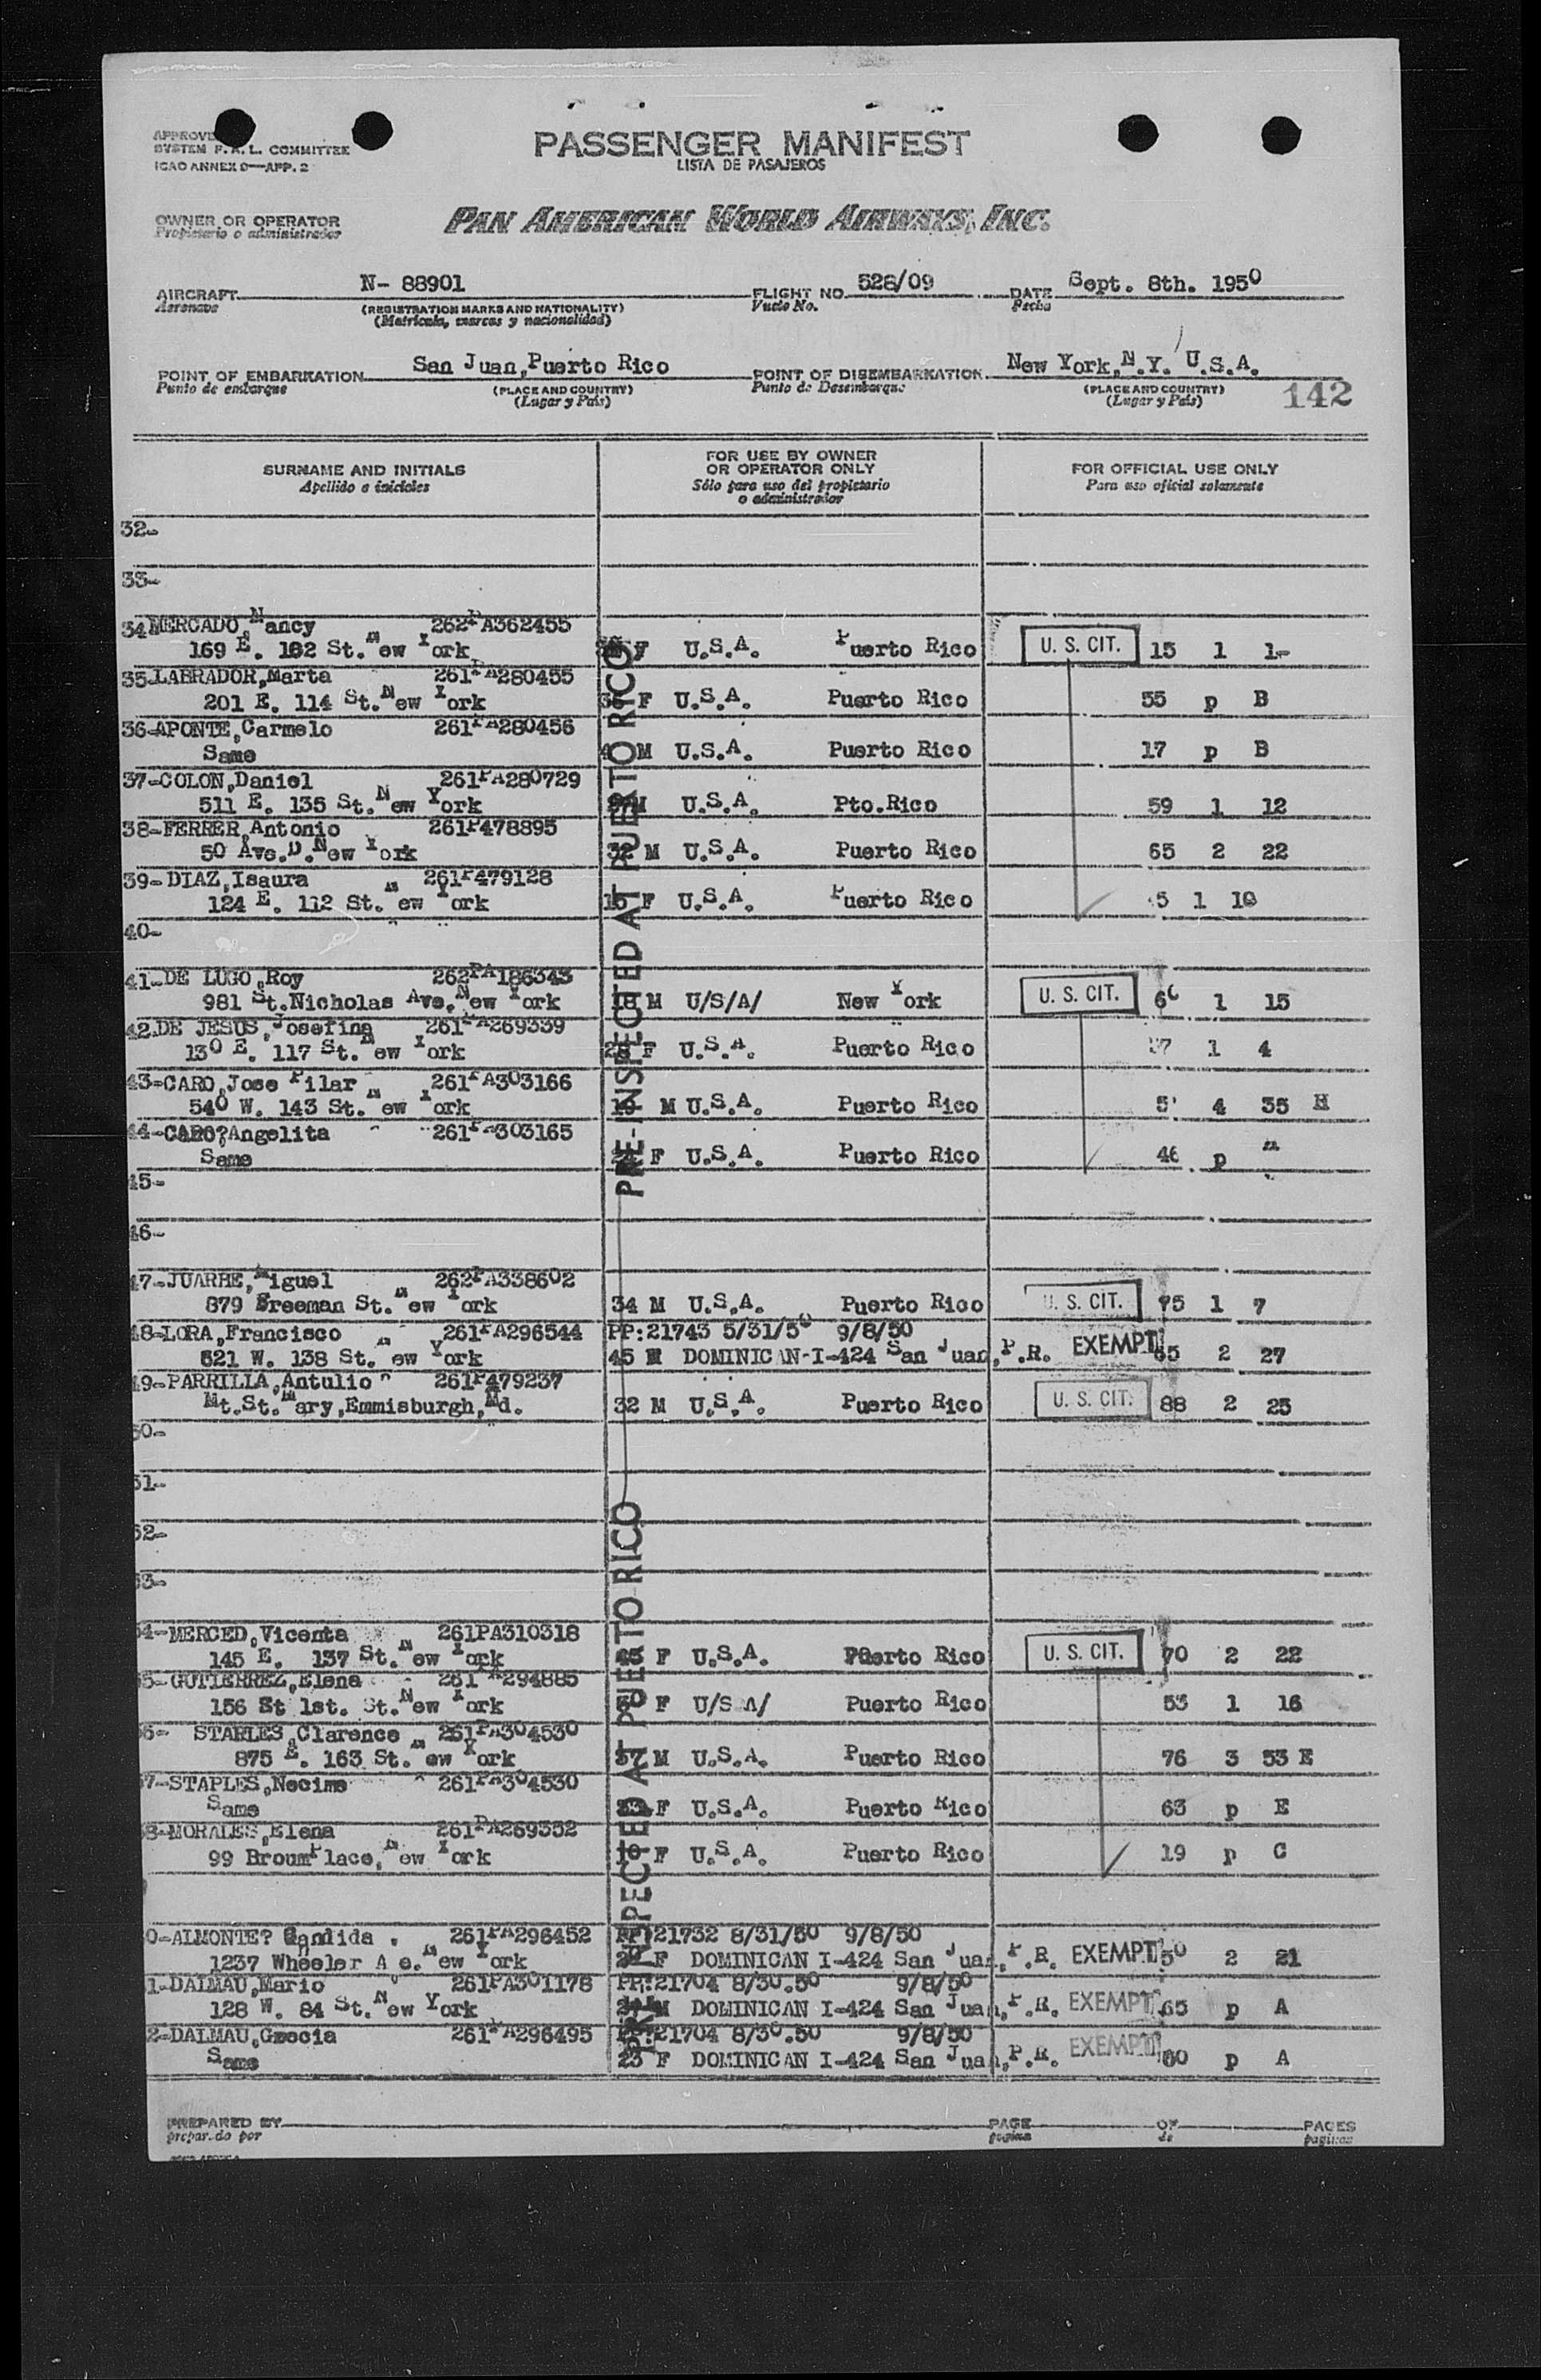 PASSENGER MANIFEST
LISTA DE PASAJEROS
SYSTEM F.A.L. COMMITTEE
ICAO ANNEX 9—APP. 2
OWNER OR OPERATOR
Propietario o administrador
PAN AMERICAN WORLD AIRWAYS, INC.
AIRCRAFT N- 88901 FLIGHT NO. 526/09 DATE Sept. 8th. 1950
Aeronave (REGISTRATION MARKS AND NATIONALITY) Vuelo No. Fecha
(Matricula, marcas y nacionalidad)
POINT OF EMBARKATION San Juan,Puerto Rico POINT OF DISEMBARKATION New York,N.Y. U.S.A.
Punto de embarque (PLACE AND COUNTRY) Punto de Desembarque (PLACE AND COUNTRY)
(Lugar y País) (Lugar y País) 142
SURNAME AND INITIALS FOR USE BY OWNER OR OPERATOR ONLY FOR OFFICIAL USE ONLY
Apellido e iniciales Sólo para uso del propietario o administrador Para uso oficial solamente
32-
33-
34 MERCADO,Nancy 262PA362455
169 E. 182 St. New York F U.S.A. Puerto Rico U. S. CIT. 15 1 1-
35-LABRADOR,Marta 261PA280455
201 E. 114 St. New York F U.S.A. Puerto Rico 55 p B
36-APONTE,Carmelo 261PA280456
Same M U.S.A. Puerto Rico 17 p B
37-COLON,Daniel 261PA280729
511 E. 135 St. New York M U.S.A. Pto.Rico 59 1 12
38-FERRER,Antonio 261P478895
50 Ave.D.New York 32 M U.S.A. Puerto Rico 65 2 22
39-DIAZ,Isaura 261P479128
124 E. 112 St. New York 15 F U.S.A. Puerto Rico 5 1 10
40-
41-DE LUGO,Roy 262PA186343
981 St.Nicholas Ave.New York M U/S/A/ New York U. S. CIT. 66 1 15
42.DE JESUS,Josefina 261PA269339
130 E. 117 St. New York F U.S.A. Puerto Rico 37 1 4
43-CARO,Jose Pilar 261PA303166
540 W. 143 St. New York M U.S.A. Puerto Rico 5 4 35 H
44-CARO?Angelita 261PA303165
Same F U.S.A. Puerto Rico 46 p
45-
46-
47-JUARBE,Miguel 262PA338602
879 Freeman St. New York 34 M U.S.A. Puerto Rico U. S. CIT. 75 1 7
48-LORA,Francisco 261PA296544 PP:21743 5/31/50 9/8/50
521 W. 138 St. New York 45 M DOMINICAN-I-424 San Juan,P.R. EXEMPT 65 2 27
49-PARRILLA,Antulio 261P479237
Mt.St.Mary,Emmisburgh,Md. 32 M U.S.A. Puerto Rico U. S. CIT. 88 2 25
50-
51-
52-
53-
54-MERCED,Vicenta 261PA310318
145 E. 137 St. New York 45 F U.S.A. Puerto Rico U. S. CIT. 70 2 22
55-GUTIERREZ,Elena 261PA294885
156 St 1st. St.New York F U/S A/ Puerto Rico 53 1 16
56- STAPLES,Clarence 261PA304530
875 E. 163 St. New York 37 M U.S.A. Puerto Rico 76 3 53 E
57-STAPLES,Necime 261PA304530
Same F U.S.A. Puerto Rico 63 p E
58-MORALES,Elena 261PA269352
99 Broum Place, New York F U.S.A. Puerto Rico 19 p C
0-ALMONTE? Candida 261PA296452 PP:21732 8/31/50 9/8/50
1237 Wheeler A e. New York F DOMINICAN I-424 San Juan,P.R. EXEMPT 50 2 21
1-DALMAU,Mario 261PA301178 PP:21704 8/30.50 9/8/50
128 W. 84 St.New York M DOMINICAN I-424 San Juan,P.R. EXEMPT 65 p A
2-DALMAU,Grecia 261PA296495 PP:21704 8/30.50 9/8/50
Same 23 F DOMINICAN I-424 San Juan,P.R. EXEMPT 60 p A
PRE-INSPECTED AT PUERTO RICO
PRE-INSPECTED AT PUERTO RICO
PREPARED BY PAGE OF PAGES
preparado por pagina de paginas